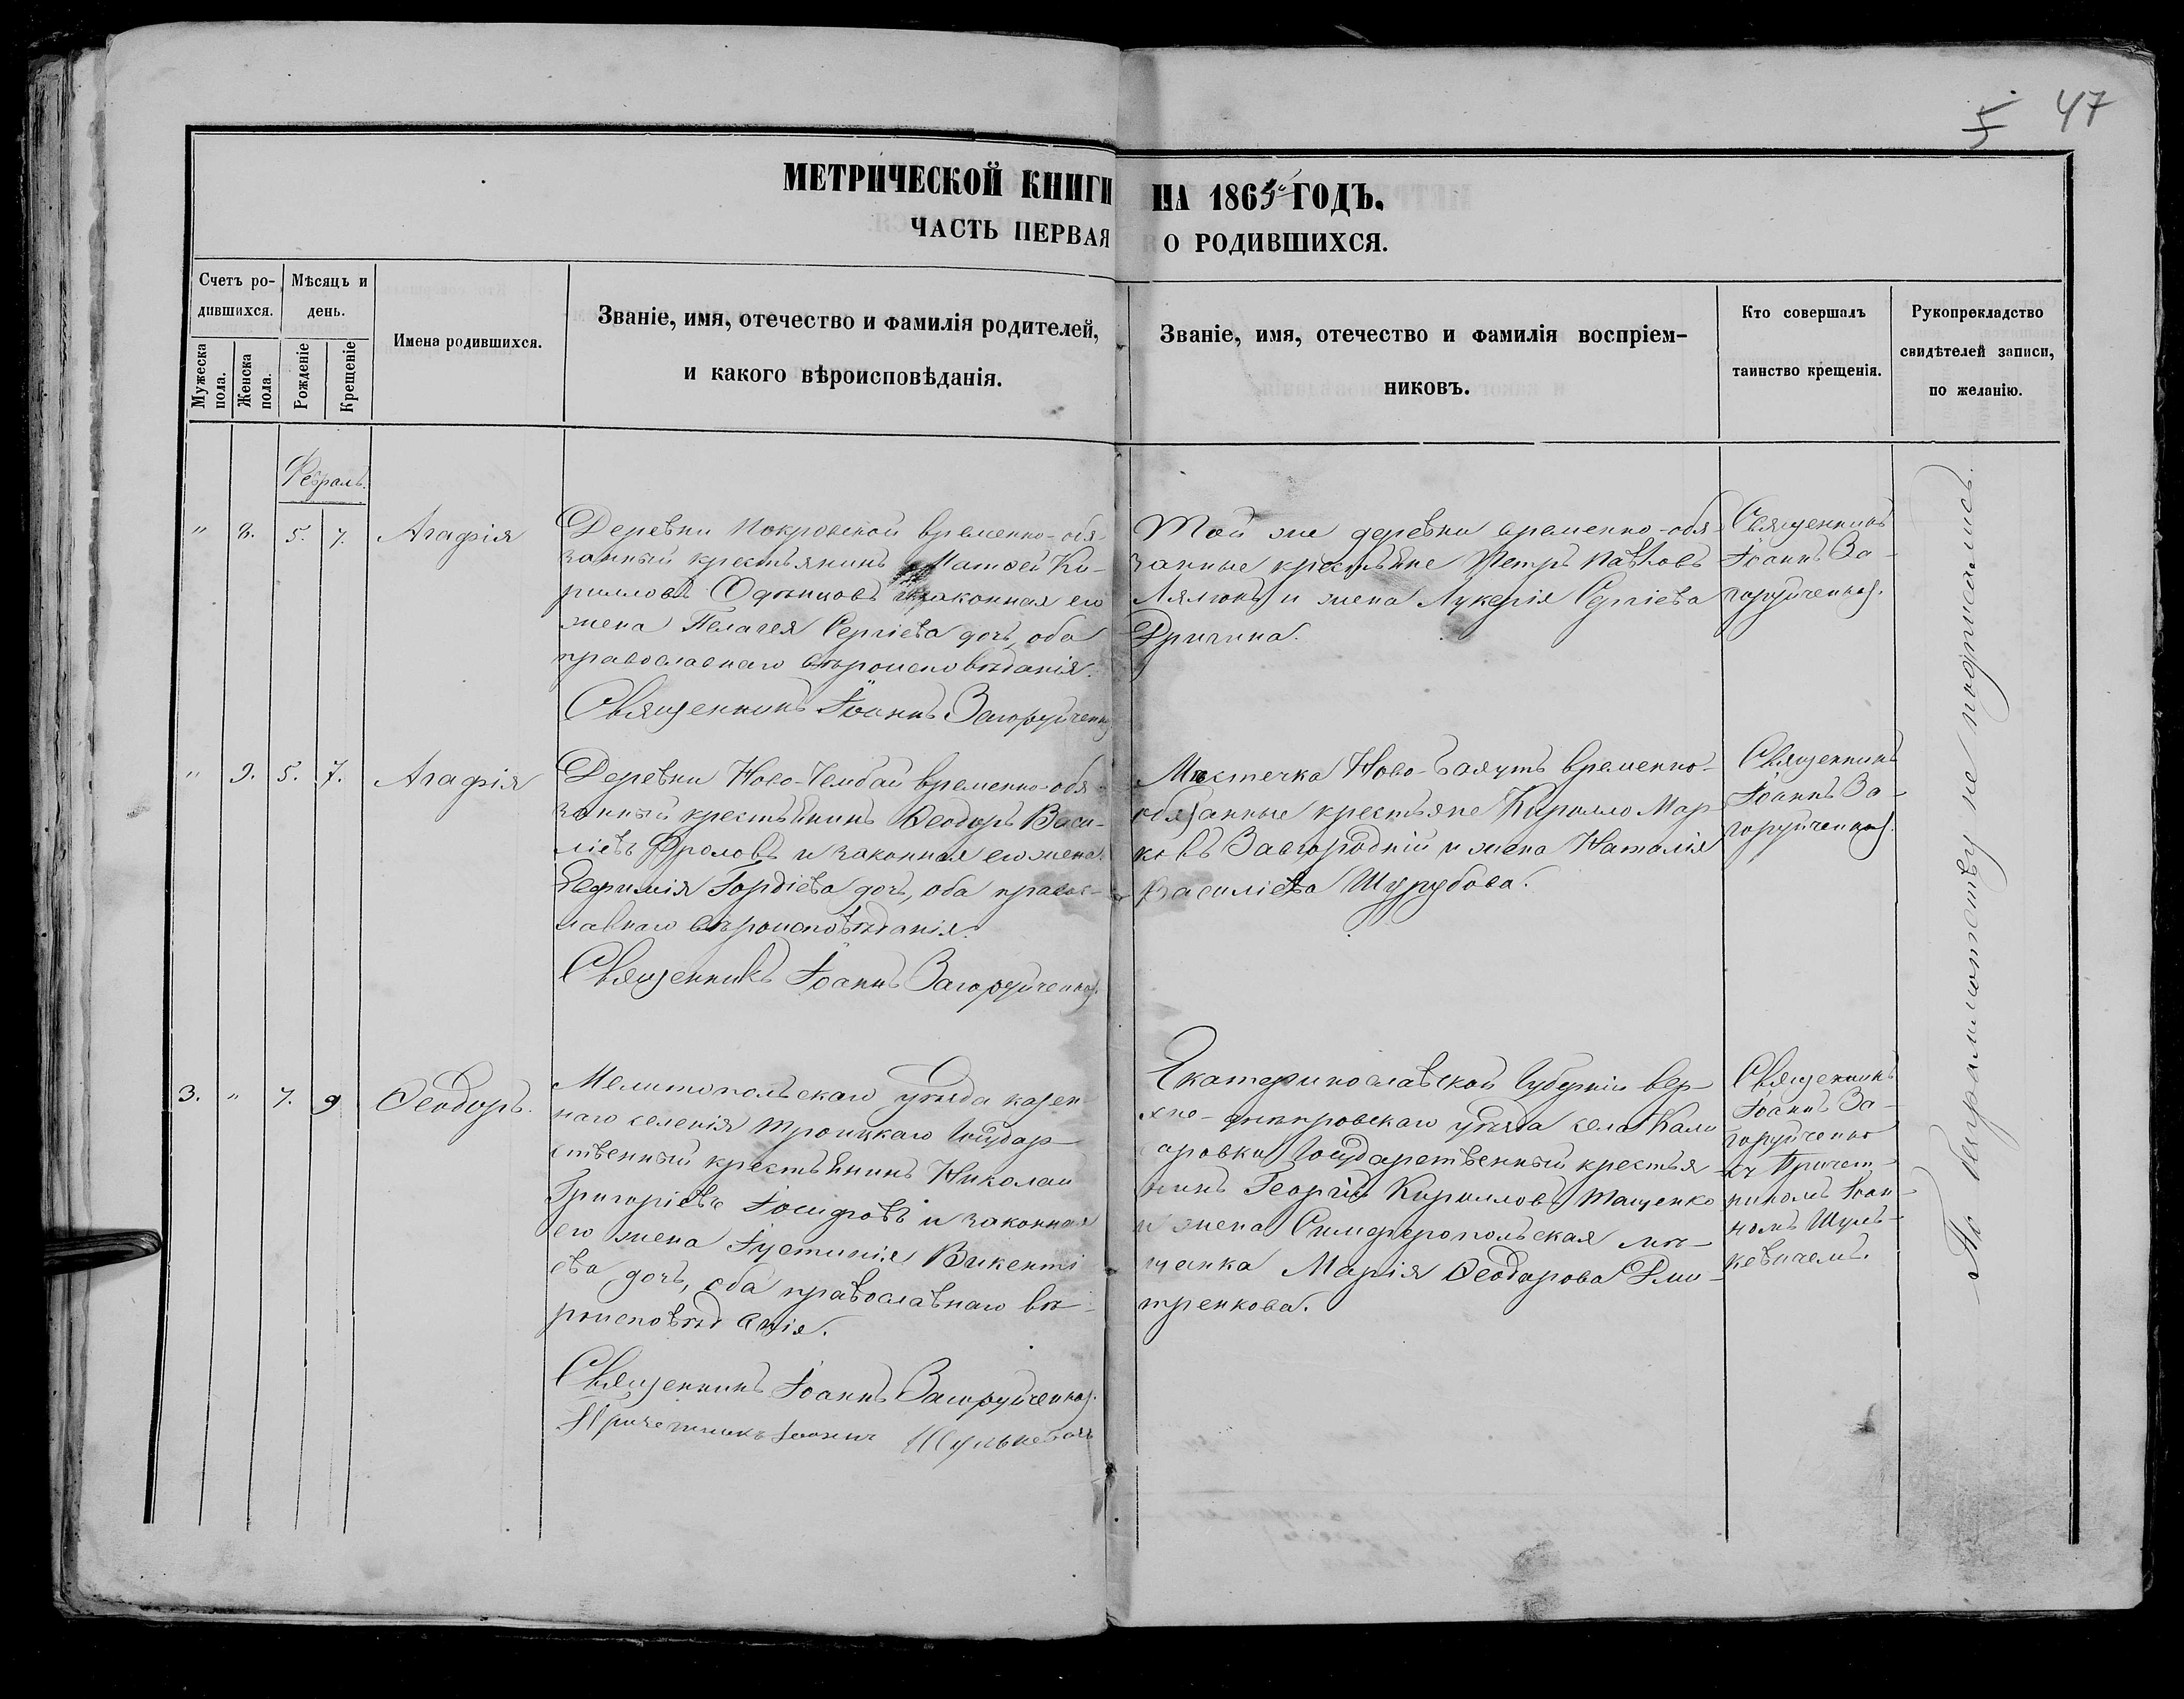 47
МЕТРИЧЕСКОЙ КНИГИ НА 1865й ГОДЪ.
ЧАСТЬ ПЕРВАЯ О РОДИВШИХСЯ.
Счетъ ро-
дившихся.
Мужеска пола.
Женска пола.
Мѣсяцъ и
день.
Рожденіе
Крещеніе
Имена родившихся.
Званіе, имя, отечество и фамилія родителей,
и какого вѣроисповѣданія.
Званіе, имя, отечество и фамилія воспріем-
никовъ.
Кто совершалъ
таинство крещенія.
Рукоприкладство
свидѣтелей записи,
по желанію.
Февраль.
" 8. 5. 7. Агафія
Деревни Покровской временно-обя-
занный крестьянинъ Матѳей Ки-
рилловъ Одинцовъ законная его
жена Пелагея Сергіева дочь, оба
православнаго вѣроисповѣданія.
Священникъ Іоаннъ Загоруйченко
Той же деревни временно-обя-
занные крестьяне Петръ Павловъ
Лялюнъ и жена Лукерія Сергіева
Дригина.
Священникъ
Іоаннъ За-
горуйченко.
" 9. 5. 7. Агафія
Деревни Ново-Чембай временно-обя-
занный крестьянинъ Ѳеодоръ Васи-
ліевъ Фроловъ и законная его жена
Евфимія Гордіева дочь, оба правос-
лавнаго вѣроисповѣданія.
Священникъ Іоаннъ Загоруйченко.
Мѣстечка Ново-Баяутъ временно-
обязанные крестьяне Кирилло Мар-
ковъ Завгородній и жена Наталія
Василіева Шурубова.
Священникъ
Іоаннъ За-
горуйченко.
3. " 7. 9 Ѳеодоръ.
Мелитопольскаго уѣзда казен-
наго селенія Троицкаго Государ-
ственный крестьянинъ Николай
Григоріевъ Іосифовъ и законная
его жена Іустинія Викенті
ева дочь, оба православнаго вѣ-
роисповѣданія.
Священникъ Іоаннъ Загоруйченко.
Причетникъ Іоаннъ Шулькевичъ
Екатеринославской Губерніи вер-
хно-днѣпровскаго уѣзда села
Государственный крестья-
нинъ Георгій Кирилловъ Тащенко
и жена Симферопольская мѣ-
щанка Марія Ѳеодорова Дми-
тренкова.
Священникъ
Іоаннъ За-
горуйченко
съ Причет-
никомъ Іоан-
номъ Шуль-
кевичемъ.
По безграмотству не подписались.